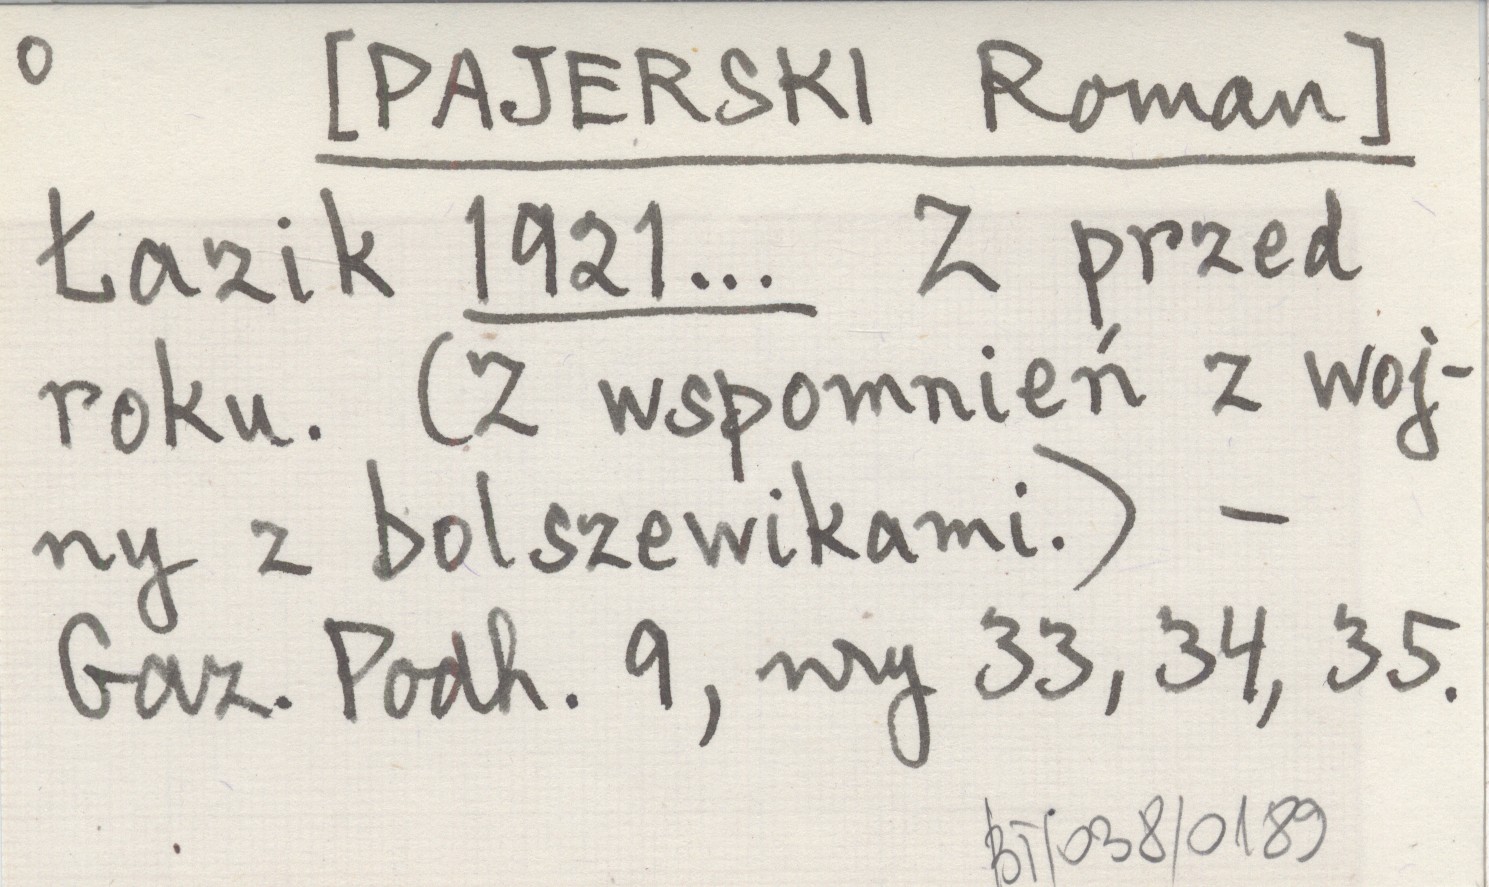 o [PAJERSKI Roman]
Łazik 1921... Z przed
roku. (Z wspomnień z woj-
ny z bolszewikami.) –
Gaz. Podh. 9, nry 33, 34, 35.
BT/038/0189